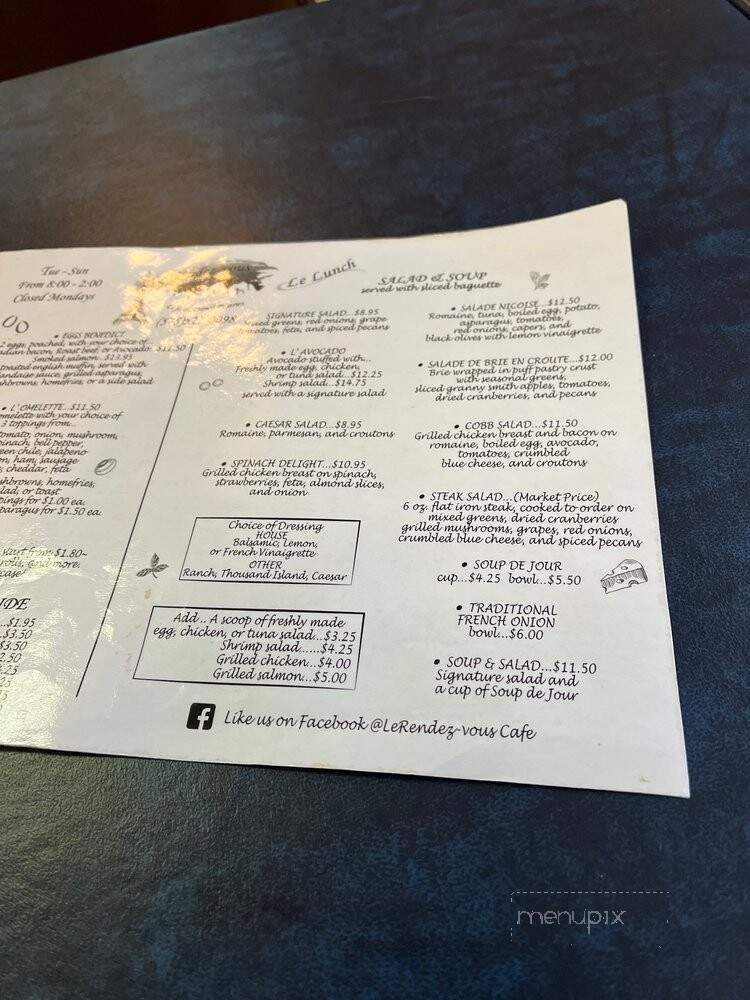 Tue - Sun
From 8:00 - 2:00
Closed Mondays
• EGGS BENEDICT
2 eggs, poached, with your choice of
bacon, Roast beef, or Avocado. $11.50
Smoked salmon. $13.95
toasted english muffin, served with
sauce, grilled asparagus,
homefries, or a side salad
• L' OMELETTE...$11.50
with your choice of
3 toppings from...
onion, mushroom,
bell pepper,
chile, jalapeno
ham, sausage
cheddar, feta
homefries,
or toast
for $1.00 ea.
for $1.50 ea.
start from $1.80~
rolls, and more.
$1.95
$3.50
$3.50
Le Lunch
SIGNATURE SALAD...$8.95
greens, red onions, grape
tomatoes, feta, and spiced pecans
• L' AVOCADO
Avocado stuffed with...
Freshly made egg, chicken,
or tuna salad...$12.25
Shrimp salad...$14.75
served with a signature salad
• CAESAR SALAD...$8.95
Romaine, parmesan, and croutons
• SPINACH DELIGHT...$10.95
Grilled chicken breast on spinach,
strawberries, feta, almond slices,
and onion
Choice of Dressing
HOUSE
Balsamic, Lemon,
or French Vinaigrette
OTHER
Ranch, Thousand Island, Caesar
Add .. A scoop of freshly made
egg, chicken, or tuna salad...$3.25
Shrimp salad......$4.25
Grilled chicken...$4.00
Grilled salmon...$5.00
SALAD & SOUP
served with sliced baguette
• SALADE NICOISE...$12.50
Romaine, tuna, boiled egg, potato,
asparagus, tomatoes,
red onions, capers, and
black olives with lemon vinaigrette
• SALADE DE BRIE EN CROUTE...$12.00
Brie wrapped in puff pastry crust
with seasonal greens,
sliced granny smith apples, tomatoes,
dried cranberries, and pecans
• COBB SALAD...$11.50
Grilled chicken breast and bacon on
romaine, boiled egg, avocado,
tomatoes, crumbled
blue cheese, and croutons
• STEAK SALAD...(Market Price)
6 oz. flat iron steak, cooked to order on
mixed greens, dried cranberries
grilled mushrooms, grapes, red onions,
crumbled blue cheese, and spiced pecans
• SOUP DE JOUR
cup...$4.25 bowl...$5.50
• TRADITIONAL
FRENCH ONION
bowl...$6.00
• SOUP & SALAD...$11.50
Signature salad and
a cup of Soup de Jour
Like us on Facebook @LeRendez-vous Cafe
menupix